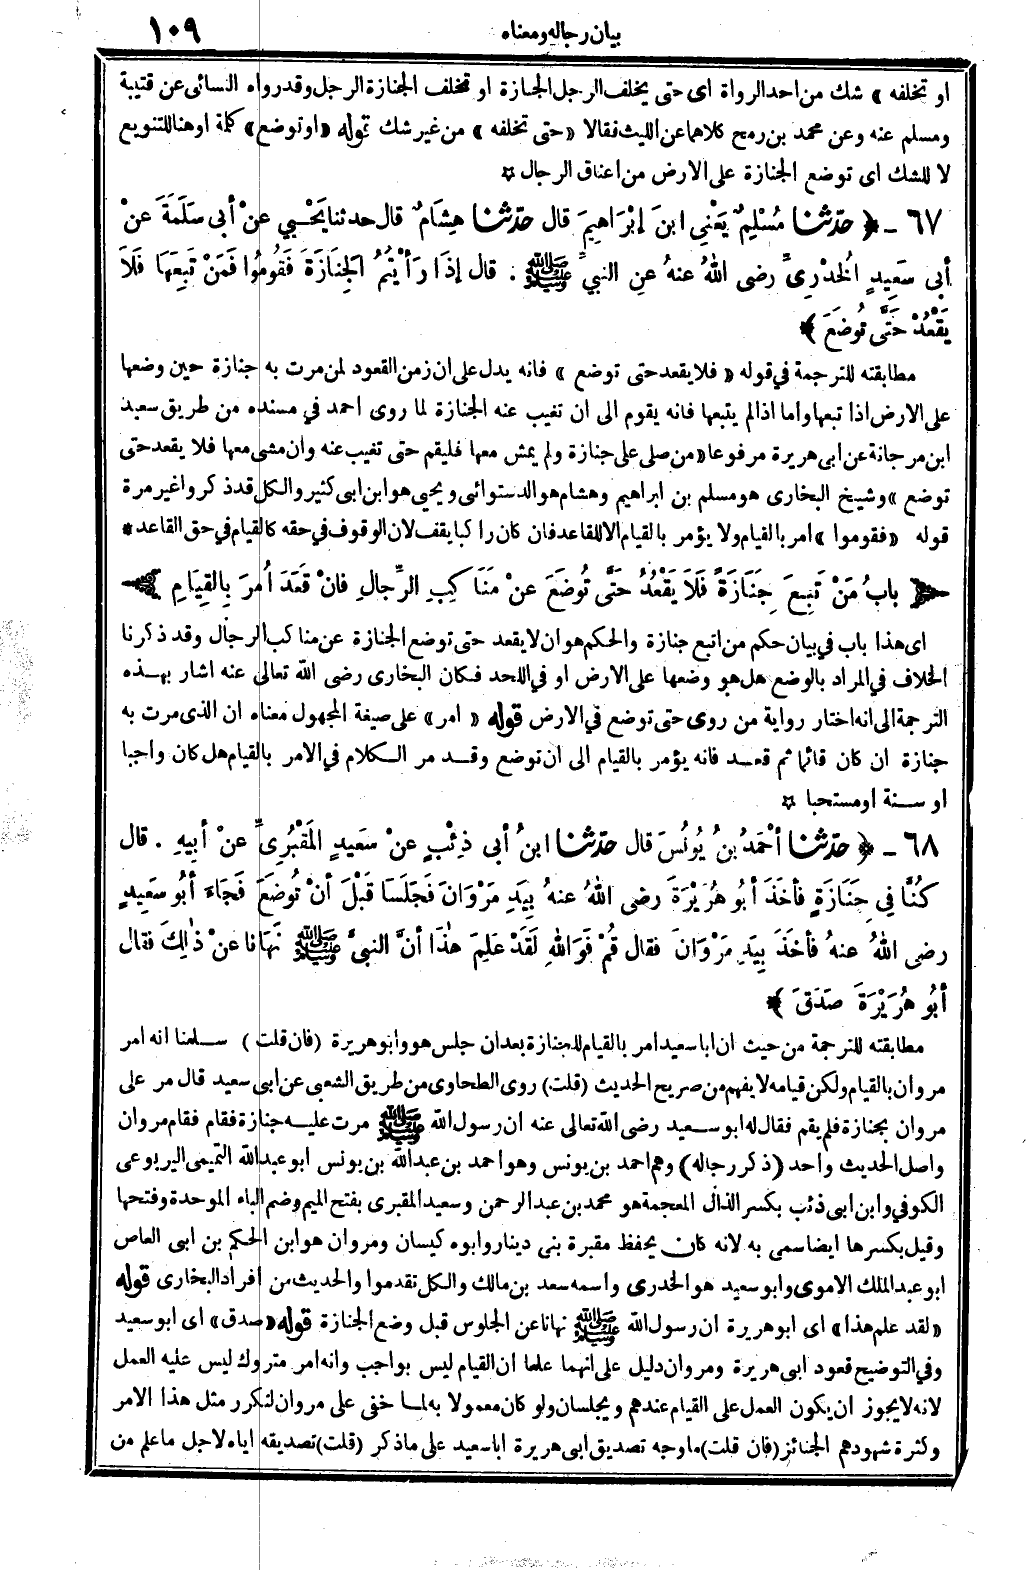 بيان رجاله ومعناه
١٠٩
او تخلفه » شك من احد الرواة اى حتى يخلف الرجل الجنازة او تخلف الجنازة الرجل وقد رواه النسائى عن قتيبة
ومسلم عنه وعن محمد بن رمح كلاهما عن الليث فقالا « حتى تخلفه » من غير شك قوله « او توضع » كلمة او هنا للتنويع
لا للشك اى توضع الجنازة على الارض من اعناق الرجال ✩
٦٧ - ﴿ حدثنا مُسْلِمٌ يَعْنِى ابنَ إبْرَاهِيمَ قال حدثنا هِشَامٌ قال حدثنا يَحْيى عنْ أبى سَلَمَةَ عنْ
أبى سَعِيدٍ الْخُدْرِىِّ رضى اللهُ عنهُ عنِ النبيِّ ﷺ . قال إذَا رَأيْتُمُ الْجِنَازَةَ فَقُومُوا فَمَنْ تَبِعَهَا فَلَا
يَقْعُدْ حَتَّى تُوضَعَ ﴾
مطابقته للترجمة فى قوله « فلا يقعد حتى توضع » فانه يدل على ان زمن القعود لمن مرت به جنازة حين وضعها
على الارض اذا تبعها واما اذا لم يتبعها فانه يقوم الى ان تغيب عنه الجنازة لما روى احمد فى مسنده من طريق سعيد
ابن مرجانة عن ابى هريرة مرفوعا « من صلى على جنازة ولم يمش معها فليقم حتى تغيب عنه وان مشى معها فلا يقعد حتى
توضع » وشيخ البخارى هو مسلم بن ابراهيم وهشام هو الدستوائى ويحيى هو ابن ابى كثير والكل قد ذكروا غير مرة
قوله « فقوموا » امر بالقيام ولا يؤمر بالقيام الا القاعد فان كان راكبا يقف لان الوقوف فى حقه كالقيام فى حق القاعد *
بابُ مَنْ تَبِعَ جَنَازَةً فَلَا يَقْعُدُ حَتَّى تُوضَعَ عنْ مَنَاكِبِ الرِّجالِ فانْ قَعَدَ أُمِرَ بِالقِيَامِ
اى هذا باب فى بيان حكم من اتبع جنازة والحكم هو ان لا يقعد حتى توضع الجنازة عن مناكب الرجال وقد ذكرنا
الخلاف فى المراد بالوضع هل هو وضعها على الارض او فى اللحد فكان البخارى رضى الله تعالى عنه اشار بهذه
الترجمة الى انه اختار رواية من روى حتى توضع فى الارض قوله « امر » على صيغة المجهول معناه ان الذى مرت به
جنازة ان كان قائما ثم قعد فانه يؤمر بالقيام الى ان توضع وقد مر الكلام فى الامر بالقيام هل كان واجبا
او سنة او مستحبا ✩
٦٨ - ﴿ حدثنا أحْمَدُ بنُ يُونُسَ قال حدثنا ابنُ أبى ذِئْبٍ عنْ سَعِيدٍ المَقْبُرِىِّ عنْ أبِيهِ . قال
كُنَّا فى جَنَازَةٍ فأخَذَ أبُو هُرَيْرَةَ رضى اللهُ عنهُ بِيَدِ مَرْوَانَ فَجَلَسَا قَبْلَ أنْ تُوضَعَ فَجَاءَ أبُو سَعِيدٍ
رضى اللهُ عنهُ فأخَذَ بِيَدِ مَرْوَانَ فقال قُمْ فَوَاللهِ لَقَدْ عَلِمَ هٰذَا أنَّ النبيَّ ﷺ نَهَانَا عنْ ذٰلِكَ فقال
أبُو هُرَيْرَةَ صَدَقَ ﴾
مطابقته للترجمة من حيث ان ابا سعيد امر بالقيام للجنازة بعد ان جلس هو وابو هريرة ( فان قلت ) سلمنا انه امر
مروان بالقيام ولكن قيامه لا يفهم من صريح الحديث ( قلت ) روى الطحاوى من طريق الشعبى عن ابى سعيد قال مر على
مروان بجنازة فلم يقم فقال له ابو سعيد رضى الله تعالى عنه ان رسول الله ﷺ مرت عليه جنازة فقام فقام مروان
واصل الحديث واحد ( ذكر رجاله ) وهم احمد بن يونس وهو احمد بن عبد الله بن يونس ابو عبد الله التميمى اليربوعى
الكوفى وابن ابى ذئب بكسر الذال المعجمة هو محمد بن عبد الرحمن وسعيد المقبرى بفتح الميم وضم الباء الموحدة وفتحها
وقيل بكسرها ايضا سمى به لانه كان يحفظ مقبرة بنى دينار وابوه كيسان ومروان هو ابن الحكم بن ابى العاص
ابو عبد الملك الاموى وابو سعيد هو الخدرى واسمه سعد بن مالك والكل تقدموا والحديث من افراد البخارى قوله
« لقد علم هذا » اى ابو هريرة ان رسول الله ﷺ نهانا عن الجلوس قبل وضع الجنازة قوله « صدق » اى ابو سعيد
وفى التوضيح قعود ابى هريرة ومروان دليل على انهما علما ان القيام ليس بواجب وانه امر متروك ليس عليه العمل
لانه لا يجوز ان يكون العمل على القيام عندهم ويجلسان ولو كان معمولا به لما خفى على مروان لتكرر مثل هذا الامر
وكثرة شهودهم الجنائز ( فان قلت ) ما وجه تصديق ابى هريرة ابا سعيد على ما ذكر ( قلت ) تصديقه اياه لاجل ما علم من